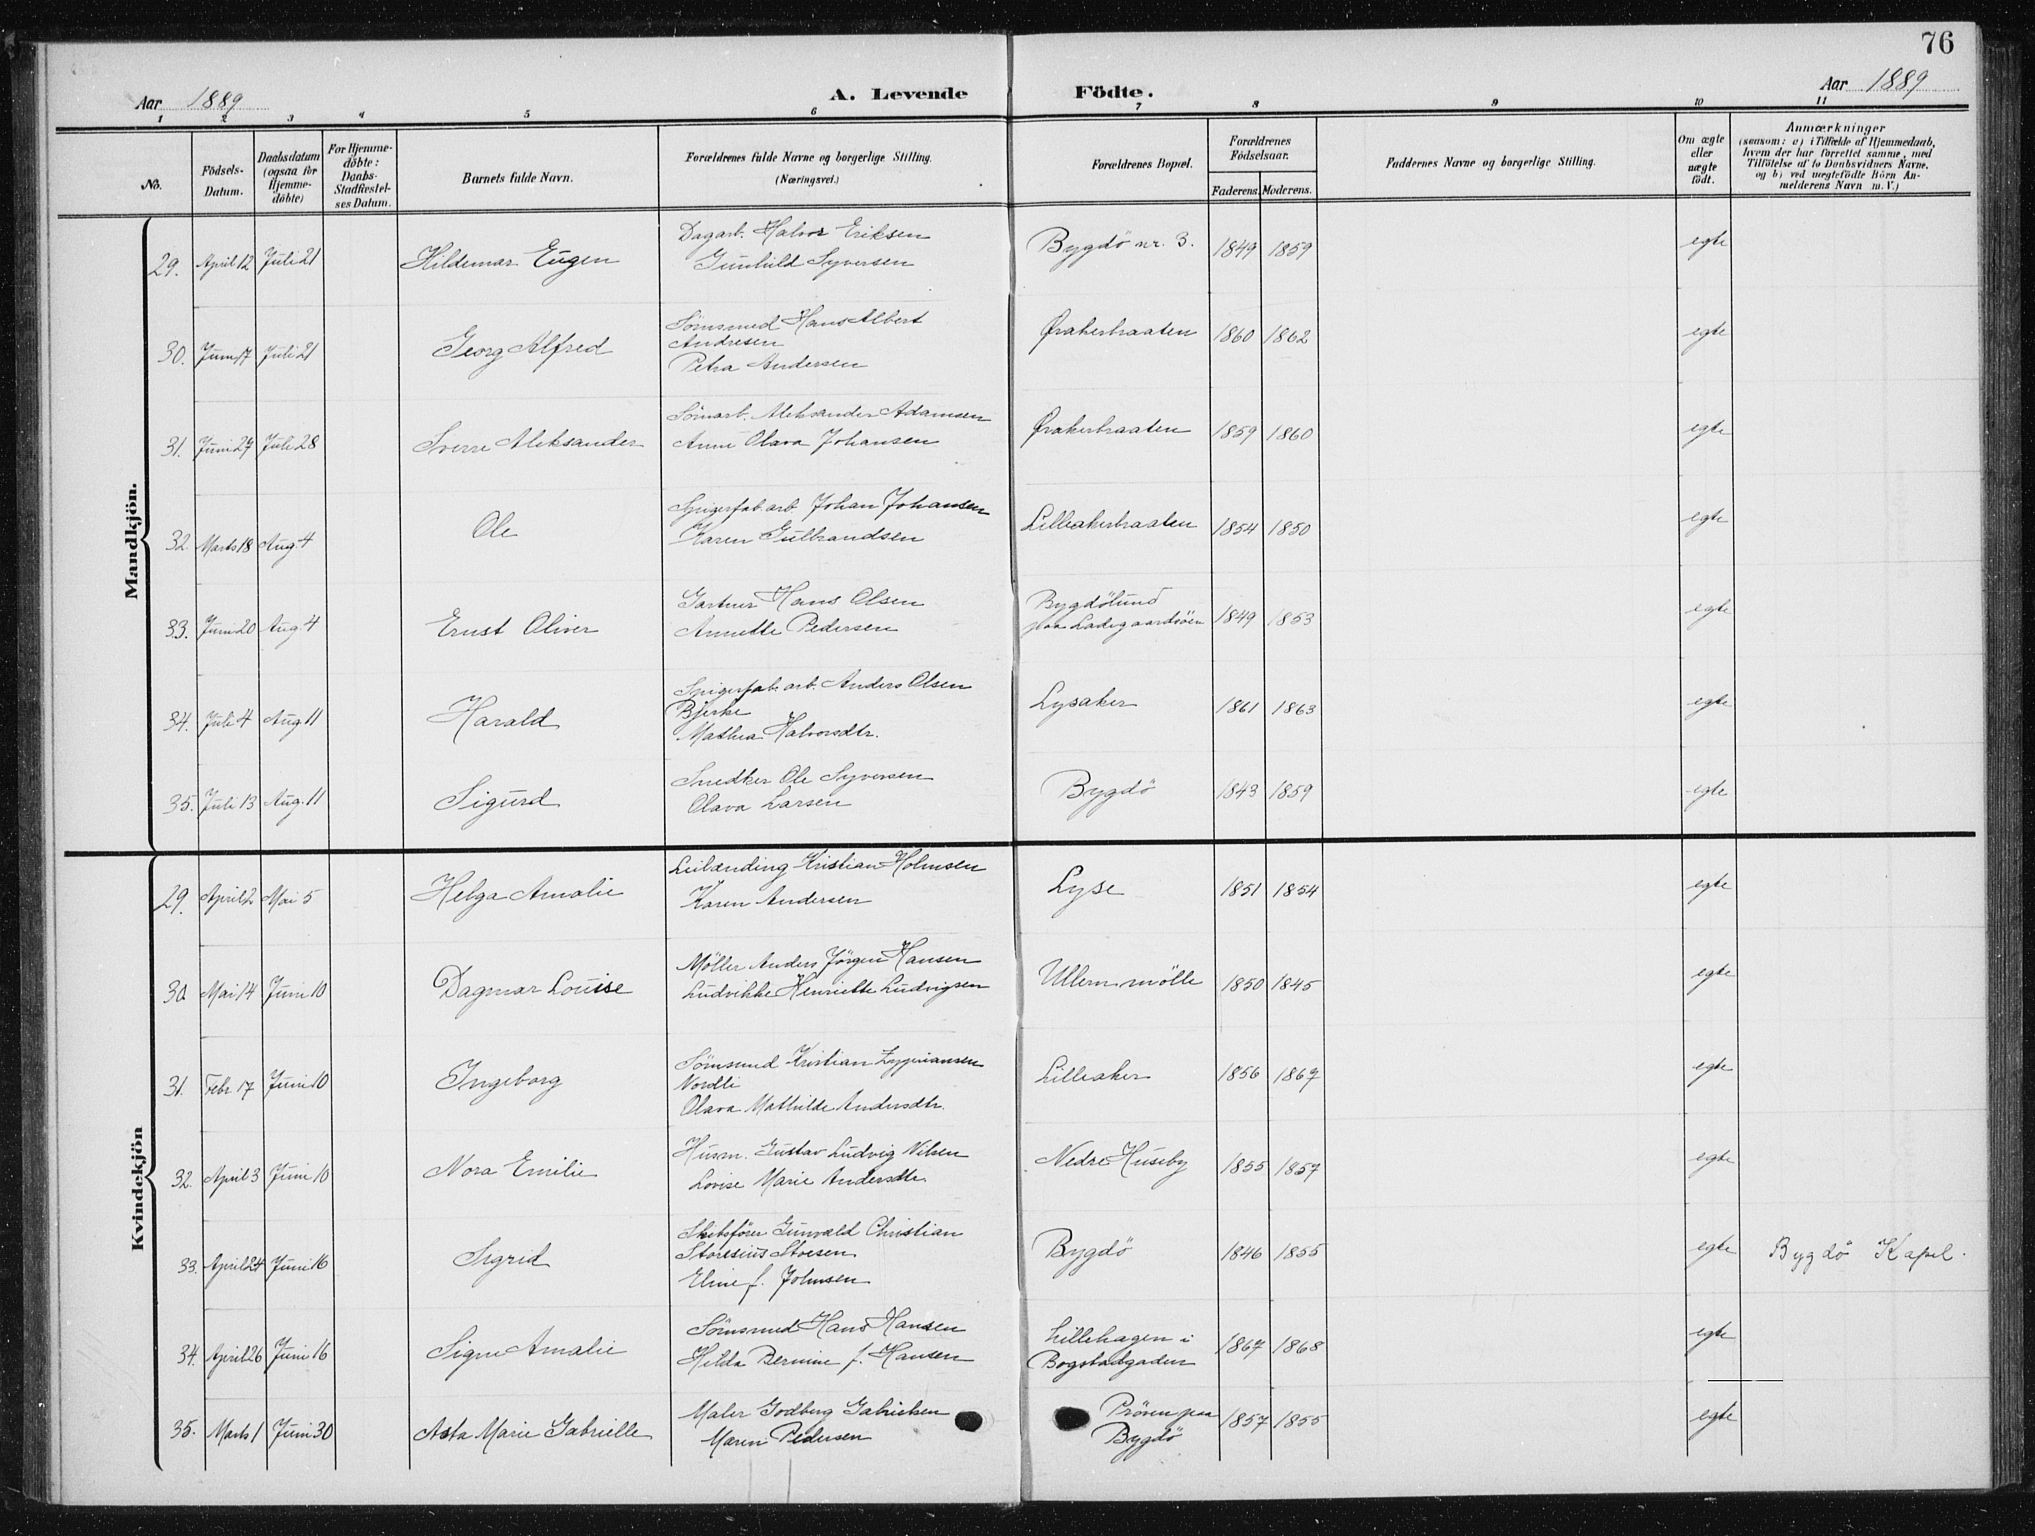 76
Aar 1889 A. Levende Födte. Aar 1889
1 2 3 4 5 6 7 8 9 10 11
No.
Födsels-Datum.
Daabsdatum (ogsaa for Hjemmedöbte)
For Hjemmedöbte: Daabs-Stadfæstelses Datum.
Barnets fulde Navn.
Forældrenes fulde Navne og borgerlige Stilling. (Næringsvei.)
Forældrenes Bopæl.
Forældrenes Födselsaar.
Faderens. Moderens.
Faddernes Navne og borgerlige Stilling.
Om ægte eller uægte födt.
Anmærkninger
(saasom: a) i Tilfælde af Hjemmedaab, hvem der har forrettet samme, med Tilföielse af to Daabsvidners Navne, og b) ved uægtefödte Börn Anmelderens Navn m. V.)
Mandkjön.
29. April 12 Juli 21 Hildemar Eugen Dagarb. Halvor Eriksen Gunhild Syversen Bygdö nr. 3. 1849 1859 egte
30. Juni 17 Juli 21 Georg Alfred Sömsmed Hans Albert Andresen Petra Andersen Ørakerbraaten 1860 1862 egte
31. Juni 27 Juli 28 Sverre Aleksander Sömarb. Aleksander Adamsen Anne Olava Johansen Ørakerbraaten 1859 1860 egte
32. Marts 18 Aug. 4 Ole Spigerfab. arb. Johan Johansen Karen Gulbrandsen Lilleakerbraaten 1854 1850 egte
33. Juni 20 Aug. 4 Ernst Oliver Gartner Hans Olsen Annette Pedersen Bygdölund paa Ladegaardsöen 1849 1853 egte
34. Juli 4 Aug. 11 Harald Spigerfab. arb. Anders Olsen Bjerke Mathea Halvorsdtr. Lysaker 1861 1863 egte
35. Juli 13 Aug. 11 Sigurd Snedker Ole Syversen Olava Larsen Bygdö 1843 1859 egte
Kvindekjön
29. April 2 Mai 5 Helga Amalie Leilænding Kristian Holmsen Karen Andersen Lyse 1851 1854 egte
30 Mai 14 Juni 10 Dagmar Louise Möller Anders Jörgen Hansen Ludvikke Henriette Ludvigsen Ullern mölle 1850 1845 egte
31. Febr 17 Juni 10 Ingeborg Sömsmed Kristian Zypriansen Nordli Olava Mathilde Andersdtr. Lilleaker 1856 1867 egte
32. April 3 Juni 10 Nora Emilie Husm. Gustav Ludvig Nilsen Lovise Marie Andersdtr. Nedre Huseby 1855 1857 egte
33. April 24 Juni 16 Sigrid Skibsförer Gunvald Christian Storesius Stoesen Eline f. Johnsen Bygdö 1846 1855 egte Bygdö Kapel.
34. April 26 Juni 16 Signe Amalie Sömsmed Hans Hansen Hilda Bernine f. Hansen Lillehagen i Bogstadgaden 1867 1868 egte
35. Marts 1 Juni 30 Asta Marie Gabrielle Maler Godberg Gabrielsen Maren Pedersen Pröven paa Bygdö 1857 1855 egte